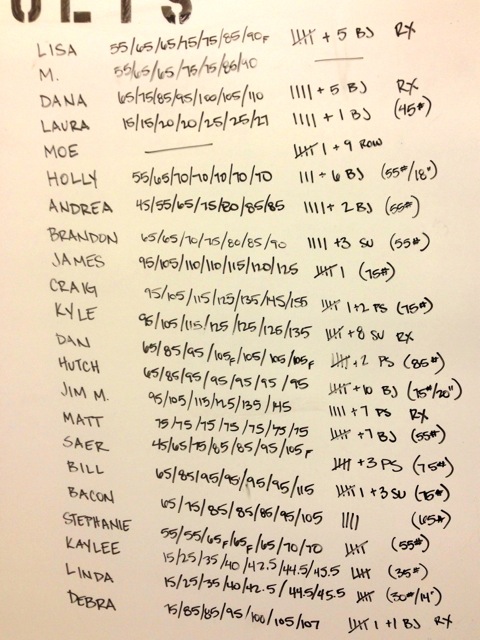 LISA 55/65/65/75/75/85/90F 卌 + 5 BJ RX
M. 55/65/65/75/75/80/90 —
DANA 65/75/85/95/100/105/110 |||| + 5 BJ RX
LAURA 15/15/20/20/25/25/27 |||| + 1 BJ (45#)
MOE — 卌 1 + 9 ROW
HOLLY 55/65/70/70/70/70/70 ||| + 6 BJ (55#/18")
ANDREA 45/55/65/75/80/85/85 |||| + 2 BJ (55#)
BRANDON 65/65/70/75/80/85/90 |||| +3 SU (55#)
JAMES 95/105/110/110/115/120/125 卌 1 (75#)
CRAIG 95/105/115/125/135/145/155 卌 1+2 PS (75#)
KYLE 95/105/115/125/125/125/135 卌 +8 SU RX
DAN 65/85/95/105F/105/105/105F 卌+2 PS (85#)
HUTCH 65/85/95/95/95/95/95 卌 +10 BJ (75#/20")
JIM M. 95/105/115/125/135/145 |||| +7 PS RX
MATT 75/75/75/75/75/75/75 卌 +7 BJ (55#)
SAER 45/65/75/85/85/95/105F 卌 +3 PS (75#)
BILL 65/85/95/95/95/95/115 卌 1 +3 SU (75#)
BACON 65/75/85/85/85/95/105 |||| (65#)
STEPHANIE 55/55/65F/65F/65/70/70 卌 (55#)
KAYLEE 15/25/35/40/42.5/44.5/45.5 卌 (35#)
LINDA 15/25/35/40/42.5/44.5/45.5 卌 (30#/14")
DEBRA 75/85/85/95/100/105/107 卌 1 +1 BJ RX